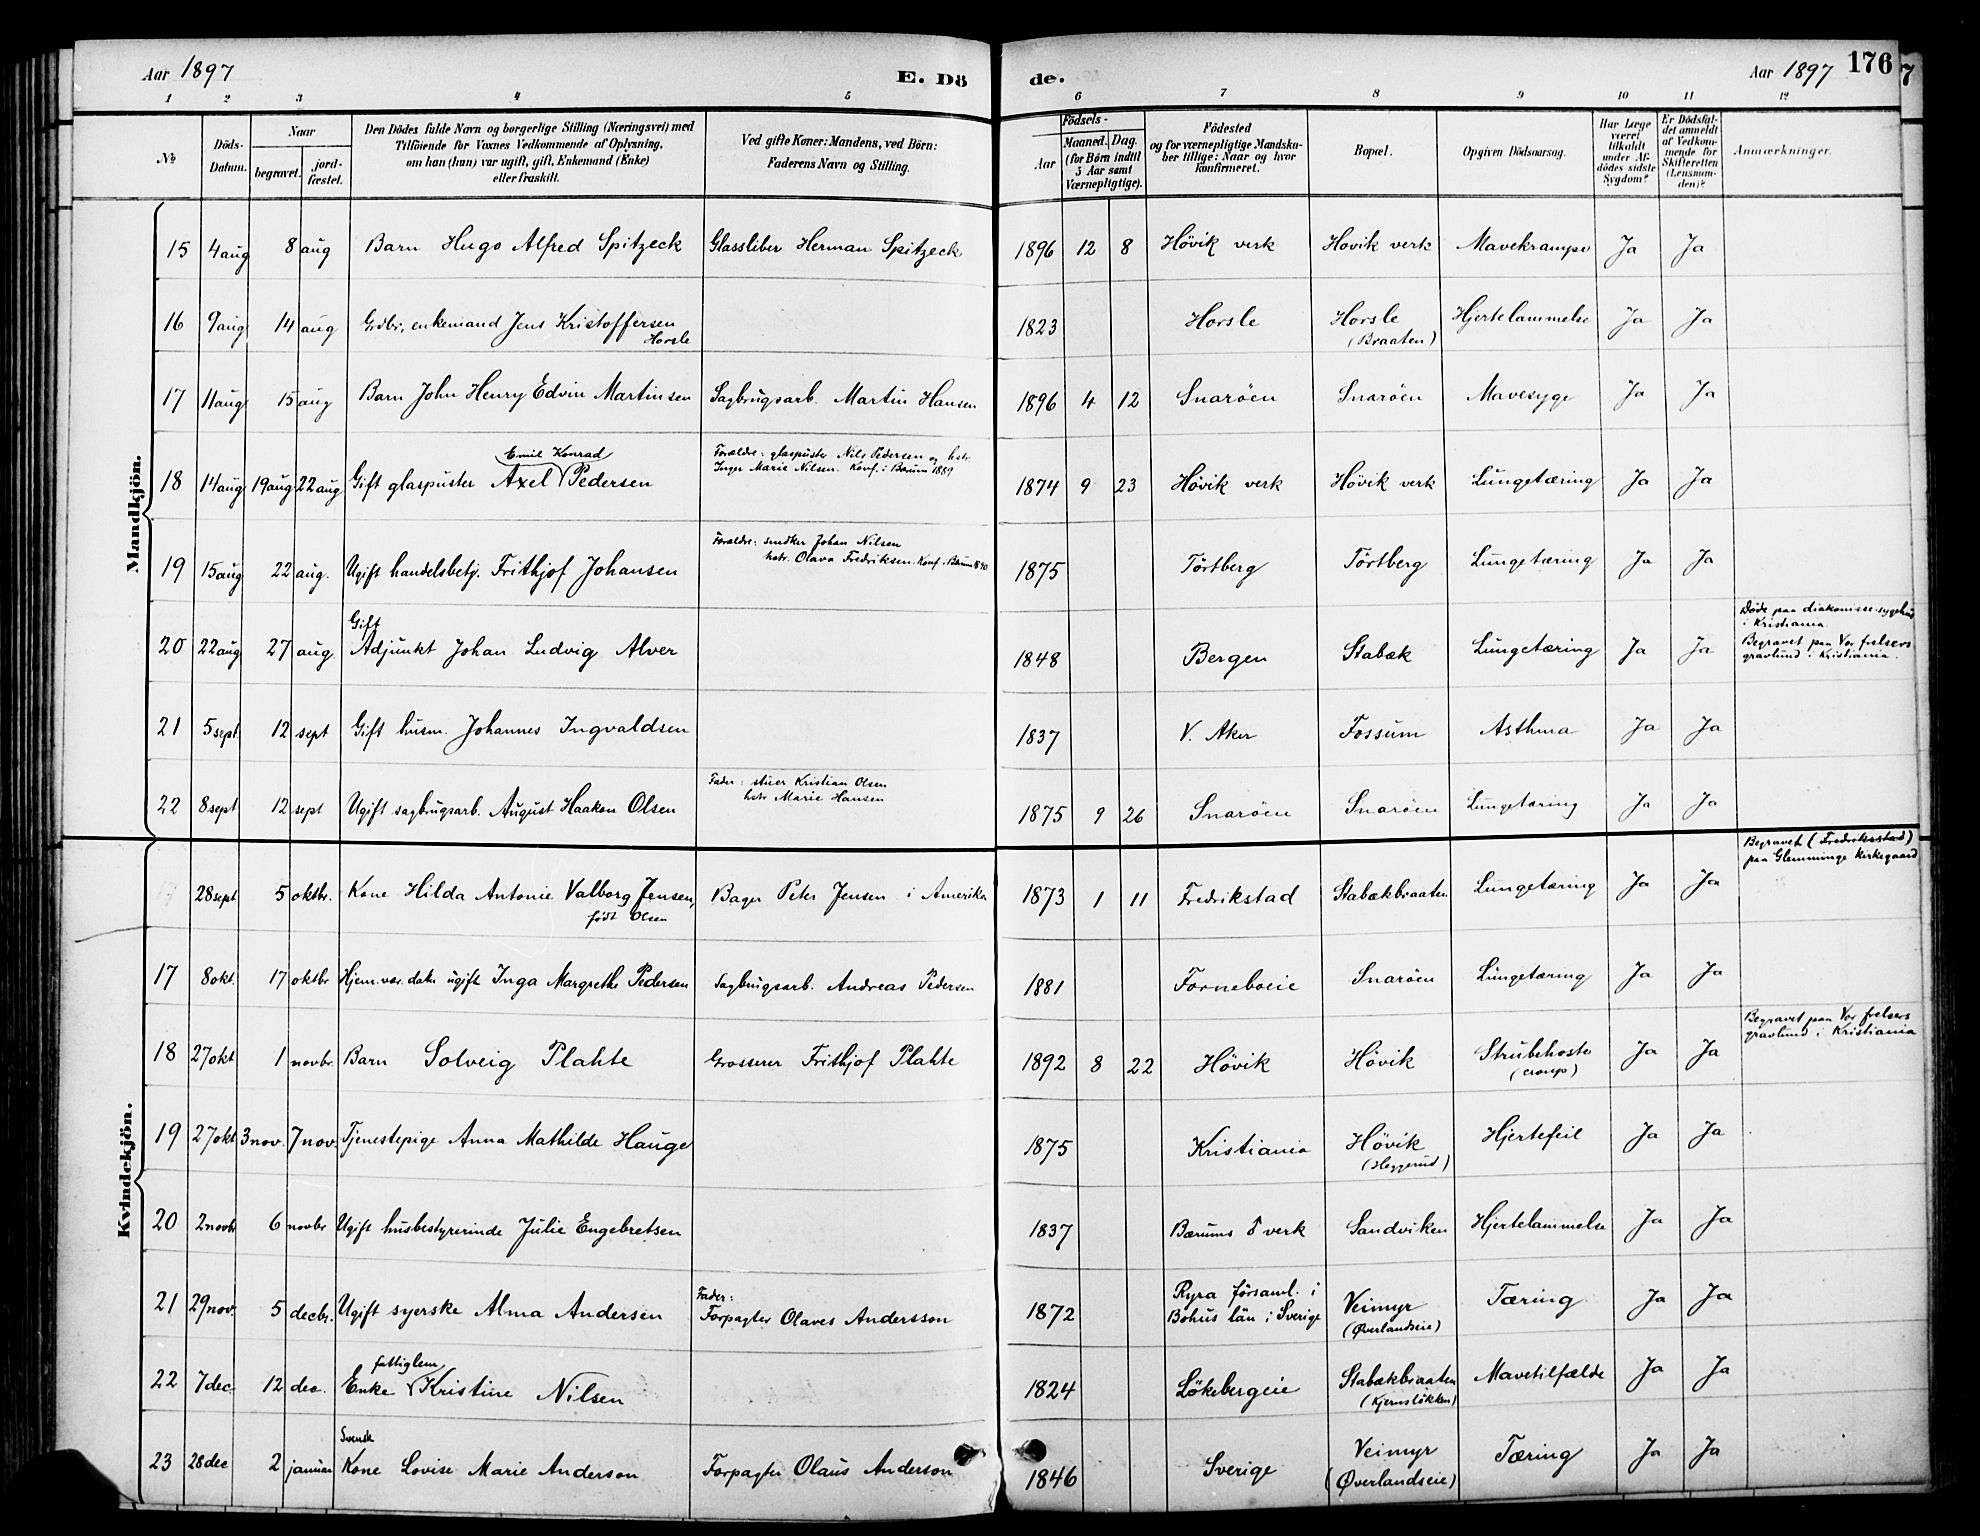 Aar 1897 E. Dö de. Aar 1897 176 7
1 2 3 4 5 6 7 8 9 10 11 12
No Döds-Datum. Naar begravet. jordfæstet. Den Dödes fulde Navn og borgerlige Stilling (Næringsvei) med Tilföiende for Voxnes Vedkommende af Oplysning, om han (hun) var ugift, gift, Enkemand (Enke) eller fraskilt. Ved gifte Koner: Mandens, ved Börn: Faderens Navn og Stilling. Födsels- Aar Maaned. Dag. (for Börn indtil 5 Aar samt Værnepligtige). Födested og for værnepligtige Mandskaber tillige: Naar og hvor konfirmeret. Bopæl. Opgiven Dödsaarsag. Har Læge været tilkaldt under Afdödes sidste Sygdom? Er Dödsfaldet anmeldt af Vedkommende for Skifteretten (Lensmanden)? Anmærkninger.
Mandkjön.
15 4 aug 8 aug Barn Hugo Alfred Spitzeck Glassliber Herman Spitzeck 1896 12 8 Hövik verk Hövik verk Mavekrampe Ja Ja
16 9 aug 14 aug Grdbr., enkemand Jens Kristoffersen Horsle 1823 Horsle Horsle (Braaten) Hjertelammelse Ja Ja
17 11 aug 15 aug Barn John Henry Edvin Martinsen Sagbrugsarb. Martin Hansen 1896 4 12 Snaröen Snaröen Mavesyge Ja Ja
18 14 aug 19 aug 22 aug Gift glaspuster Axel Emil Konrad Pedersen Forældre: glaspuster Nils Pedersen og hstr. Inger Marie Nilsen. Konf. i Bærum 1889 1874 9 23 Hövik verk Hövik verk Lungetæring Ja Ja
19 15 aug 22 aug. Ugift handelsbetj. Frithjof Johansen Forældre: snedker Johan Nilsen hstr. Olava Fredriksen. Konf. i Bærum 1890 1875 Törtberg Törtberg Lungetæring Ja Ja
20 22 aug 27 aug Gift Adjunkt Johan Ludvig Alver 1848 Bergen Stabæk Lungetæring Ja Ja Döde paa diakonisse-sygehus i Kristiania. Begravet paa Vor frelsers gravlund i Kristiania.
21 5 sept 12 sept Gift husm. Johannes Ingvaldsen 1837 V. Aker Fossum Asthma Ja Ja
22 8 sept 12 sept Ugift sagbrugsarb. August Haakon Olsen Fader: stuer Kristian Olsen hstr Marie Hansen 1875 9 26 Snaröen Snaröen Lungetæring Ja Ja
Kvindekjön.
28 sept 5 oktbr. Kone Hilda Antonie Valborg Jensen, født Olsen Bager Peter Jensen i Amerika 1873 1 11 Fredrikstad Stabækbraaten Lungetæring Ja Ja Begravet (Fredriksstad) paa Glemminge kirkegaard
17 8 okt. 17 oktbr Hjem. vær. datr ugift Inga Margrethe Pedersen Sagbrugsarb. Andreas Pedersen 1881 Forneboeie Snaröen Lungetæring Ja Ja
18 27 okt 1 novbr. Barn Solveig Plahte Grosserer Frithjof Plahte 1892 8 22 Hövik Hövik Strubehoste (croup) Ja Ja Begravet paa Vor frelsers gravlund i Kristiania
19 27 okt 3 nov. 7 nov. Tjenestepige Anna Mathilde Hauge 1875 Kristiania Hövik (Heggerud) Hjertefeil Ja Ja
20 2 novbr 6 novbr Ugift husbestyrerinde Julie Engebretsen 1837 Bærums verk Sandviken Hjertelammelse Ja Ja
21 29 nov. 5 decbr. Ugift syerske Alma Andersen Fader: Forpagter Olaves Andersson 1872 Ryra församl. i Bohus län i Sverige Veimyr (Øverlandseie) Tæring Ja Ja
22 7 dec. 12 dec. Enke fattiglem Kristine Nilsen 1824 Lökebergeie Stabækbraaten (Kjernsløkken) Mavetilfælde Ja Ja
23 28 dec 2 januar Svensk Kone Lovise Marie Anderson Forpagter Olaus Anderson 1846 Sverige Veimyr (Øverlandseie) Tæring Ja Ja